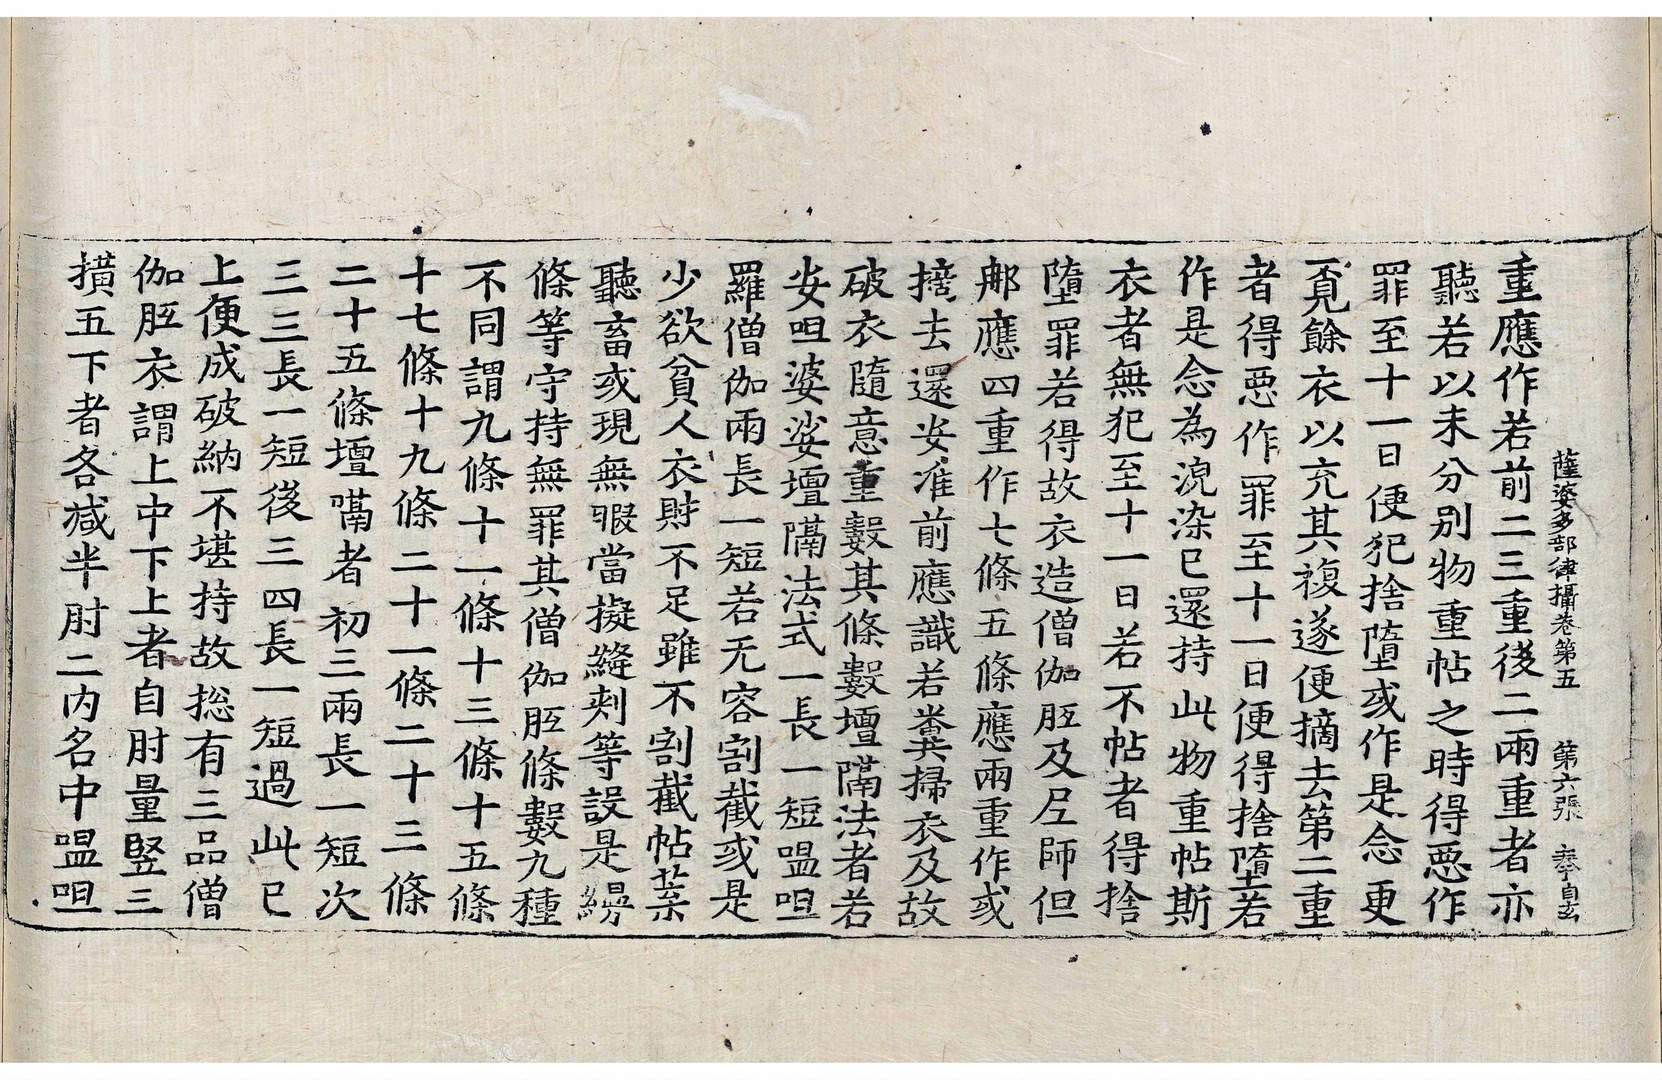 薩婆多部律攝卷第五 第六張 奉自玄
重應作若前二三重後二兩重者亦
聽若以未分別物重帖之時得惡作
罪至十一日便犯捨墮或作是念更
覓餘衣以充其複遂便摘去第二重
者得惡作罪至十一日便得捨墮若
作是念為浣染已還持此物重帖斯
衣者無犯至十一日若不帖者得捨
墮罪若得故衣造僧伽胝及尼師但
那應四重作七條五條應兩重作或
擿去還安准前應識若糞掃衣及故
破衣隨意重數其條數壇隔法者若
安呾婆娑壇隔法式一長一短嗢呾
羅僧伽兩長一短若无容割截或是
少欲貧人衣財不足雖不割截帖葉
聽畜或現無暇當擬縫刺等設是縵
條等守持無罪其僧伽胝條數九種
不同謂九條十一條十三條十五條
十七條十九條二十一條二十三條
二十五條壇隔者初三兩長一短次
三三長一短後三四長一短過此已
上便成破納不堪持故揔有三品僧
伽胝衣謂上中下上者自肘量竪三
撗五下者各减半肘二內名中嗢呾